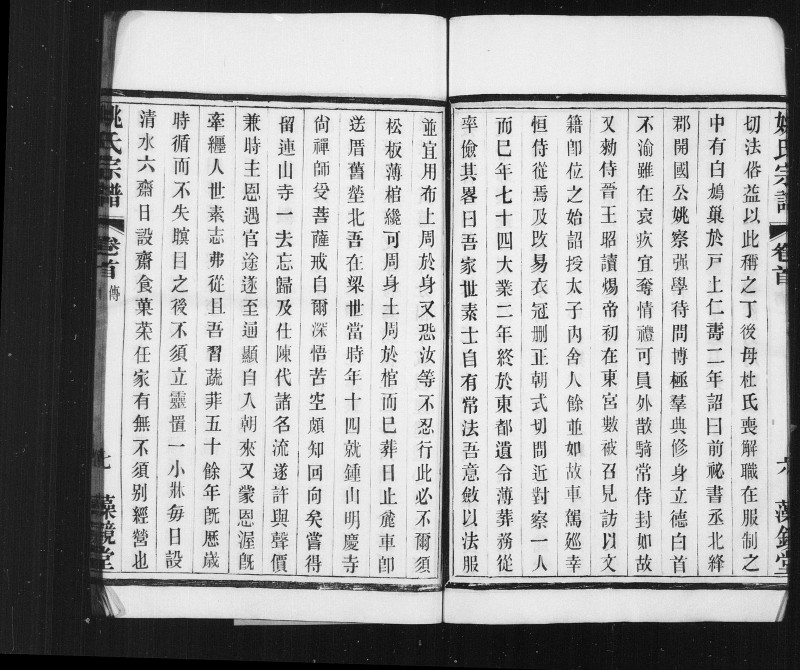 姚氏宗譜 卷首 六 藻鏡堂
切法俗益以此稱之丁後母杜氏喪解職在服制之
中有白鳩巢於戸上仁壽二年詔曰前祕書丞北絳
郡開國公姚察强學待問博極羣典修身立德白首
不渝雖在哀疚宜奪情禮可員外散騎常侍封如故
又勑侍晉王昭讀煬帝初在東宮數被召見訪以文
籍卽位之始詔授太子内舍人餘並如故車駕廵幸
恒侍從焉及改易衣冠删正朝式切問近對察一人
而已年七十四大業二年終於東都遺令薄葬務從
率儉其畧曰吾家世素士自有常法吾意斂以法服
並宜用布土周於身又恐汝等不忍行此必不爾須
松板薄棺纔可周身土周於棺而已葬日止麄車卽
送厝舊塋北吾在梁世當時年十四就鍾山明慶寺
尙禪師受菩薩戒自爾深悟苦空頗知回向矣嘗得
留連山寺一去忘歸及仕陳代諸名流遂許與聲價
兼時主恩遇官途遂至通顯自入朝來又蒙恩渥旣
牽纒人世素志弗從且吾習蔬菲五十餘年旣歷歲
時循而不失瞑目之後不須立靈置一小牀每日設
清水六齋日設齋食菓菜任家有無不須别經營也
姚氏宗譜 卷首 傳 七 藻鏡堂